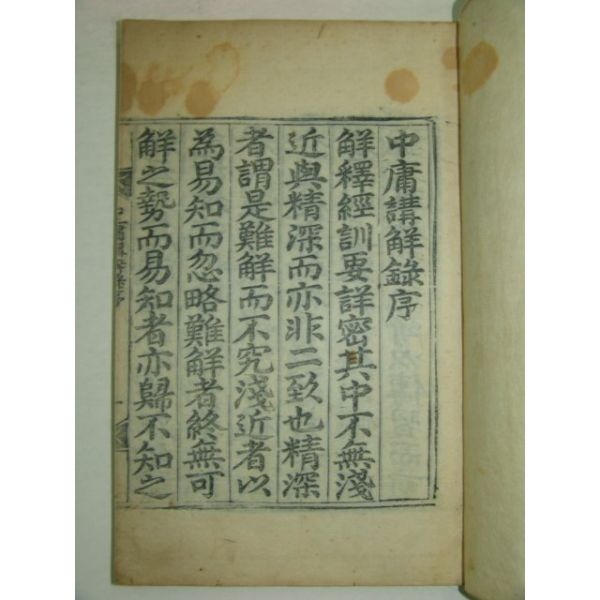 中庸講解錄序
解釋經訓要詳密其中不無淺
近與精深而亦非二致也精深
者謂是難解而不究淺近者以
為易知而忽略難解者終無可
解之勢而易知者亦歸不知之